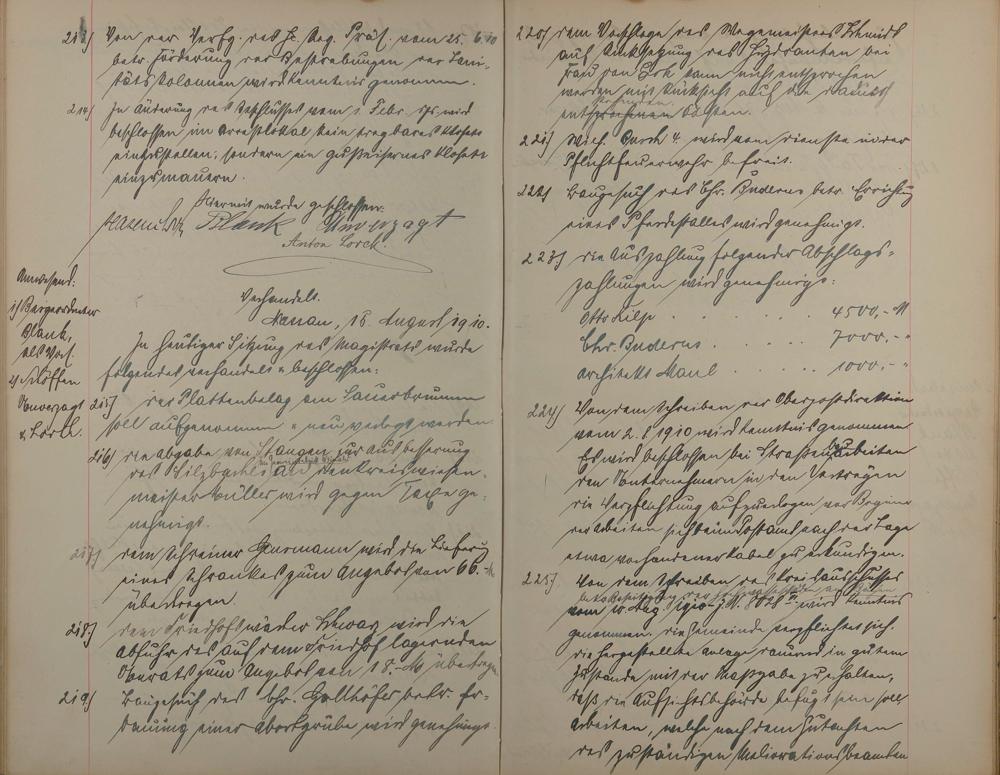 213) Von der Verfg. des H. Reg. Präs. vom 25. 6. 10
betr. Förderung der Bestrebungen der Sani-
tätskolonnen wird Kenntnis genommen.
214) In Änderung des Beschlusses vom 1. Febr. 175 wird
beschlossen im Arrestlokal kein tragbares Kloset
einzustellen, sondern ein gußeisernes Kloset
einzumauern.
Hiermit wurde geschlossen:
Blank Unverzagt
Anton Lorck.
Anwesend:
1) Bürgermeister
Blank,
als Vors.
2) Schöffen
Unverzagt
u. Lorck.
Verhandelt.
15. August 1910.
In heutiger Sitzung des Magistrats wurde
folgendes verhandelt u. beschlossen:
215) der Plattenbelag am Sauerbrunnen
soll aufgenommen u. neu verlegt werden.
216) die Abgabe von Stangen zur Ausbesserung
des Bilzbaches an den Kreiswiesen-
meister Müller wird gegen Taxe ge-
nehmigt.
217) dem Schreiner wird die Lieferung
eines Schrankes zum Angebot von 66.-M
übertragen.
218) dem Friedhofswärter wird die
Abfuhr des auf dem Friedhof lagernden
Unrats zum Angebot von 18.-M übertragen.
219) Baugesuch des Chr. betr. Er-
bauung einer Abortgrube wird genehmigt.
220) dem Vorschlage des Wegemeisters Schmidt
auf Umsetzung des Hydranten bei
Frau von kann nicht entsprochen
werden mit Rücksicht auf die dadurch
entstehenden Kosten.
221) Wilh. wird vom Dienste in der
Pflichtfeuerwehr befreit.
222) Baugesuch des Chr. Buderus betr. Errichtung
eines Pferdestalles wird genehmigt.
223) die Auszahlung folgender Abschlags-
zahlungen wird genehmigt:
Otto Kilp . . . . . . 4500,- M
Chr. Buderus . . . . . 7000,- "
Architekt Maul . . . . . 1000,- "
224) Von dem Schreiben der Oberpostdirektion
vom 2. 8. 1910 wird Kenntnis genommen
Es wird beschlossen bei Straßenbauarbeiten
den Unternehmern in den Verträgen
die Verpflichtung aufzuerlegen vor Beginn
der Arbeiten sich beim Postamt nach der Lage
etwa vorhandener Kabel zu erkundigen.
225) Von dem Schreiben des Kreisausschusses
vom 10. Aug. 1910 wird Kenntnis
genommen. die Gemeinde verpflichtet sich.
die hergestellte Anlage dauernd in gutem
Zustande mit der Maßgabe zu erhalten,
daß die Aufsichtsbehörde befugt sein soll
Arbeiten, welche nach dem Gutachten
des zuständigen Meliorationsbeamten